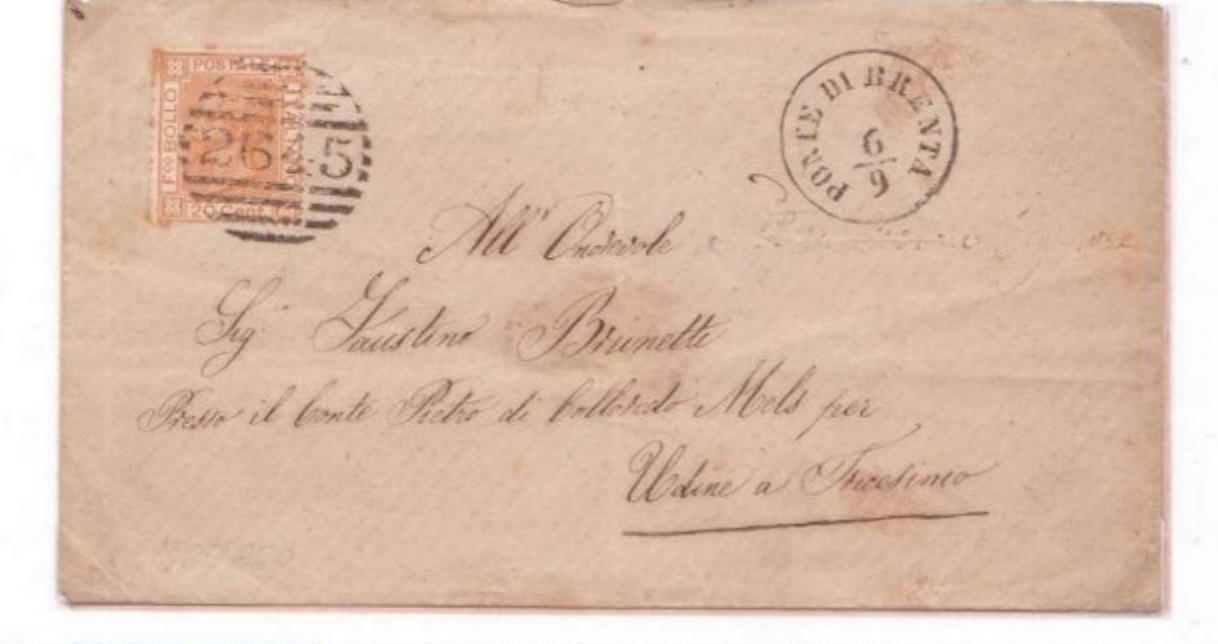 POSTALE
F.CO BOLLO
20 Cent
26 5
PONTE DI BRENTA
6/9
All' Onorevole
Sig. Faustino Brunetti
Presso il Conte Pietro di Colloredo Mels per
Udine a Tricesimo